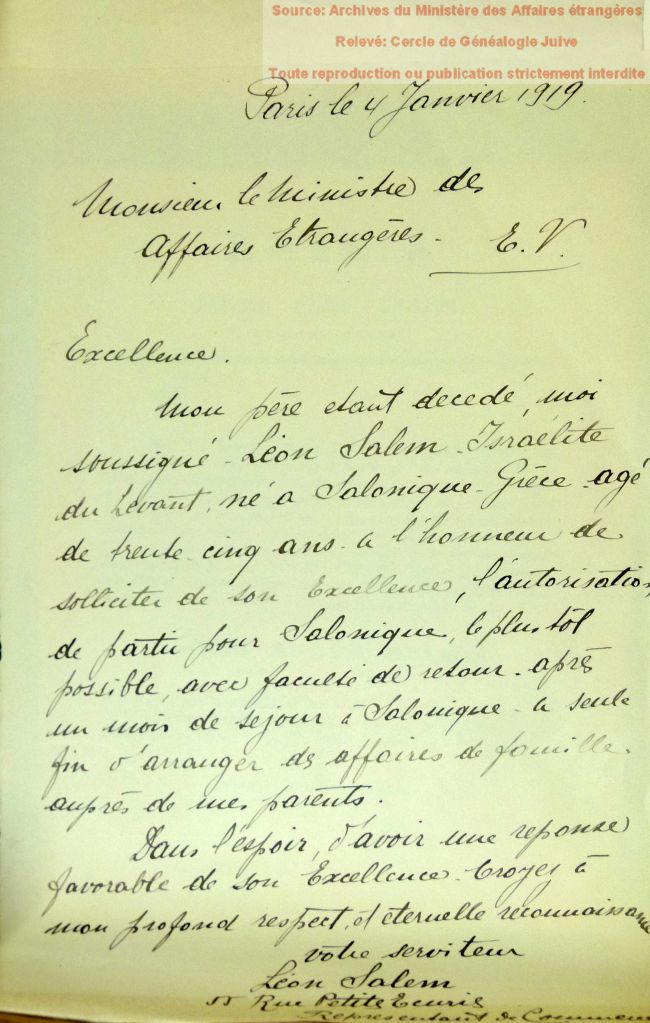 Source: Archives du Ministère des Affaires étrangères
Relevé: Cercle de Généalogie Juive
Toute reproduction ou publication strictement interdite
Paris le 4 Janvier 1919.
Monsieur le Ministre des
Affaires Etrangères - E. V.
Excellence.
Mon père etant decedé, moi
soussigné - Léon Salem - Israélite
du Levant, né a Salonique - Grèce - agé
de trente-cinq ans - a l'honneur de
solliciter de son Excellence, l'autorisation
de partir pour Salonique, le plus tôt
possible, avec faculté de retour - après
un mois de sejour à Salonique - a seule
fin d'arranger des affaires de famille.
auprès de mes parents.
Dans l'espoir, d'avoir une reponse
favorable de son Excellence - Croyez à
mon profond respect, et eternelle reconnaissance
votre serviteur
Léon Salem
Rue Petite Ecurie
Representant de Commerce